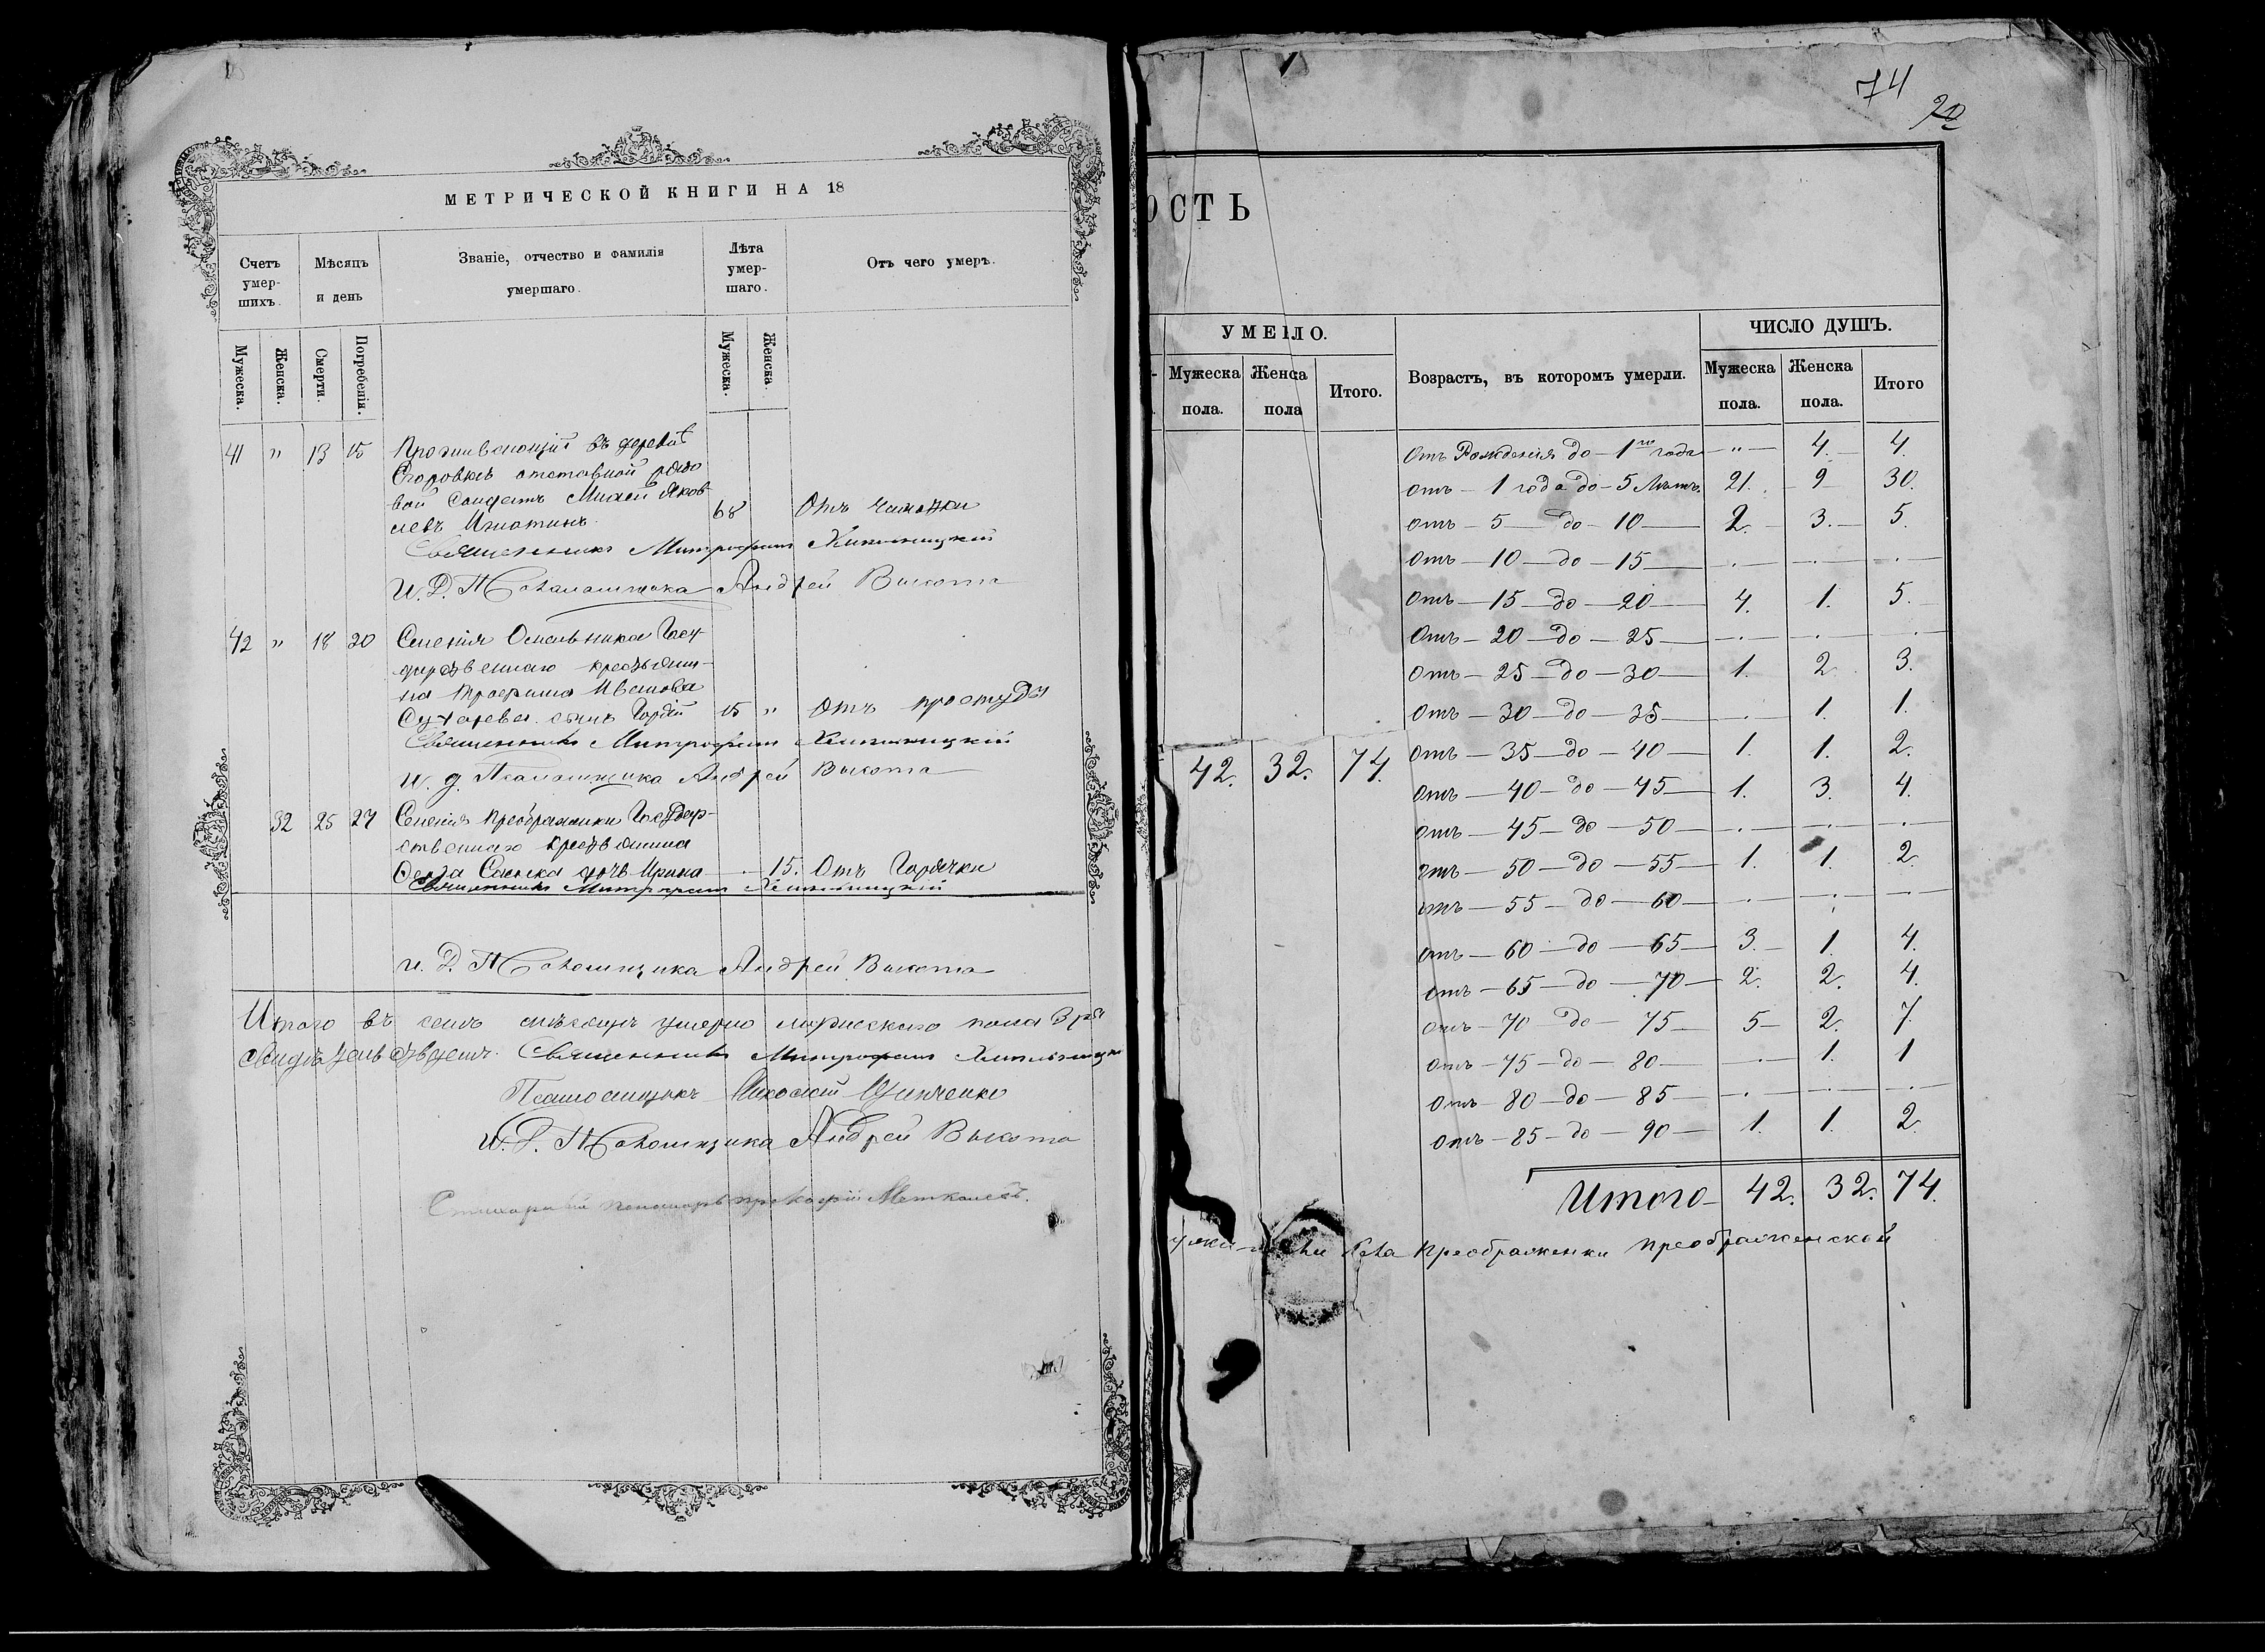 МЕТРИЧЕСКОЙ КНИГИ НА 18
Счетъ умер-шихъ.
Мѣсяцъ и день
Званіе, отчество и фамилія умершаго.
Лѣта умер-шаго.
Отъ чего умеръ.
Мужеска.
Женска.
Смерти.
Погребенія.
Мужеска.
Женска.
41 " 13 15 Проживающій въ деревнѣ
Егоровкѣ отставной рядо
вой Солдатъ Михей Яков
левъ 68 Отъ чахотки
Священникъ Митрофанъ Хильницкій
И. Д. Псаломщика Андрей Высота
42 " 18 20 Селенія Госу-
дарственнаго крестьяни-
на Трофима Иванова
Сухарева сынъ Гордій 15 " Отъ простуды
Священникъ Митрофанъ Хильницкій
И. д. Псаломщика Андрей Высота
32 25 27 Селенія Преображенки Государ-
ственнаго крестьянина
дочь Ирина 15. Отъ Горячки
Священникъ Митрофанъ Хильницкій
И. Д. Псаломщика Андрей Высота
Итого въ семъ мѣсяцѣ умерло мужескаго пола
Священникъ Митрофанъ Хильницкій
Псаломщикъ Николай
И. Д. Псаломщика Андрей Высота
Стихарный пономарь Прокофій
74
20
ОСТЬ
УМЕРЛО.
Возрастъ, въ которомъ умерли.
ЧИСЛО ДУШЪ.
Мужеска пола.
Женска пола
Итого.
Мужеска пола.
Женска пола.
Итого
Отъ Рожденія до 1го года " 4. 4.
отъ 1 года до 5 Лѣтъ. 21. 9 30.
отъ 5 до 10 2. 3. 5.
отъ 10 до 15 . . .
отъ 15 до 20 4. 1. 5.
отъ 20 до 25 . . .
отъ 25 до 30 1. 2. 3.
отъ 30 до 35 . 1. 1.
42. 32. 74.
отъ 35 до 40 1. 1. 2.
отъ 40 до 45 1. 3. 4.
отъ 45 до 50 . . .
отъ 50 до 55 1. 1. 2.
отъ 55 до 60 . . .
отъ 60 до 65 3. 1. 4.
отъ 65 до 70 2. 2. 4.
отъ 70 до 75 5 2. 7.
отъ 75 до 80 . 1. 1
отъ 80 до 85 . . .
отъ 85 до 90 1. 1. 2.
Итого 42. 32. 74.
Села Преображенки Преображенской